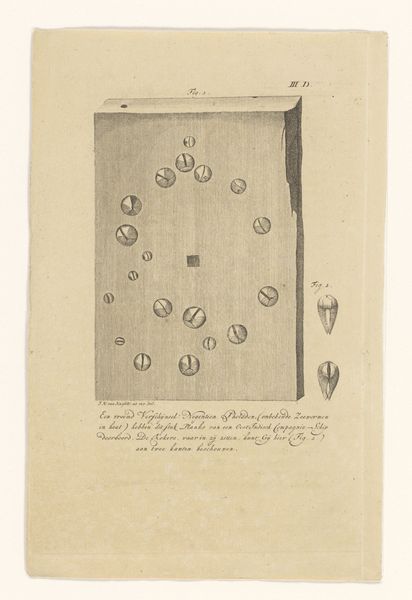 III D.
Fig. 1.
Fig. 2.
Een vreemd Verschijnsel: Negentien Pholaden, (onbekende Zeewormen
in hout) hebben dit stuk Planks van een Oost-Indisch Compagnie-Schip
doorboord. De Kokers, waar in zij zitten, kunt Gij hier (Fig. 2.)
aan twee kanten beschouwen.